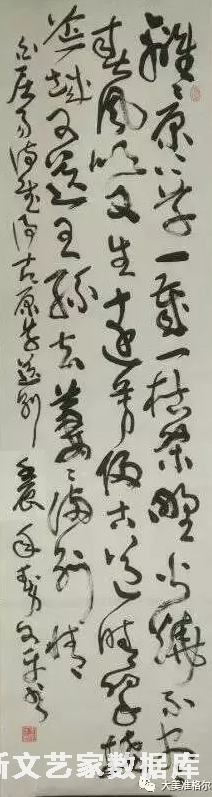 離〻原上草一歲一枯榮野火燒不盡
春風吹又生遠芳侵古道晴翠接
荒城又送王孫去萋〻滿別情
白居易詩賦得古原草送別 壬辰年
新文艺家数据库
大美准格尔